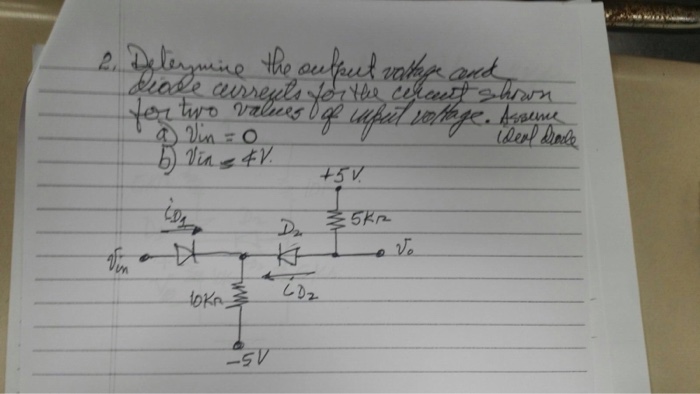 2. Determine the output voltage and
diode currents for the circuit shown
for two values of input voltage. Assume
ideal diode
a) Vin = 0
b) Vin = 4V.
+5V.
iD1
5KΩ
D2
Vin
Vo
iD2
10KΩ
-5V